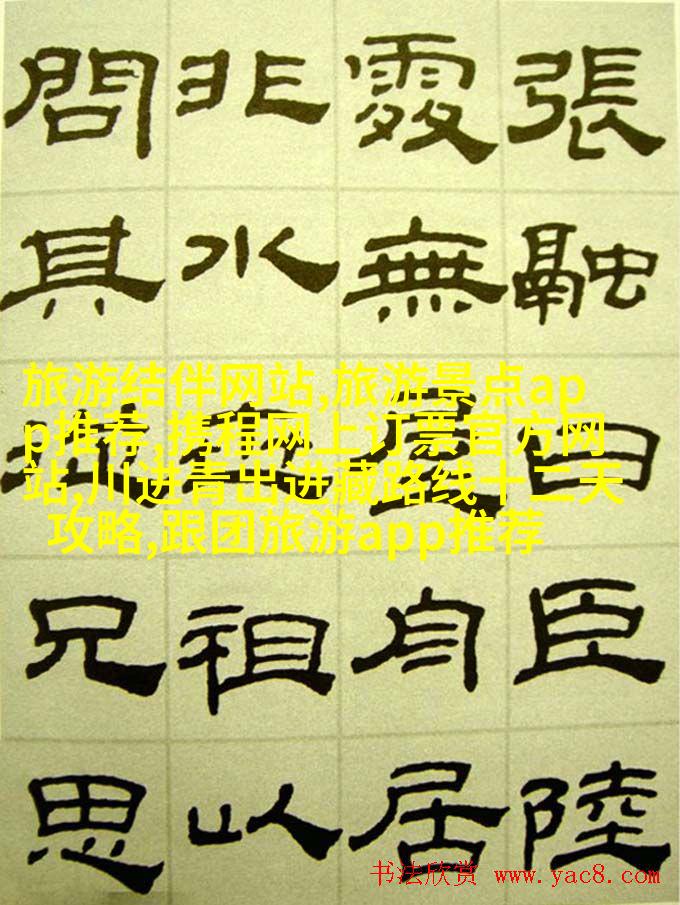 張融曰臣陸
處無屋舟居
非水祖以
問其兄思
旅游结伴网站,旅游景点ap
p推荐,携程网上订票官方网
站,川进青出进藏路线十二天
攻略,跟团旅游app推荐
书法欣赏 www.yac8.com